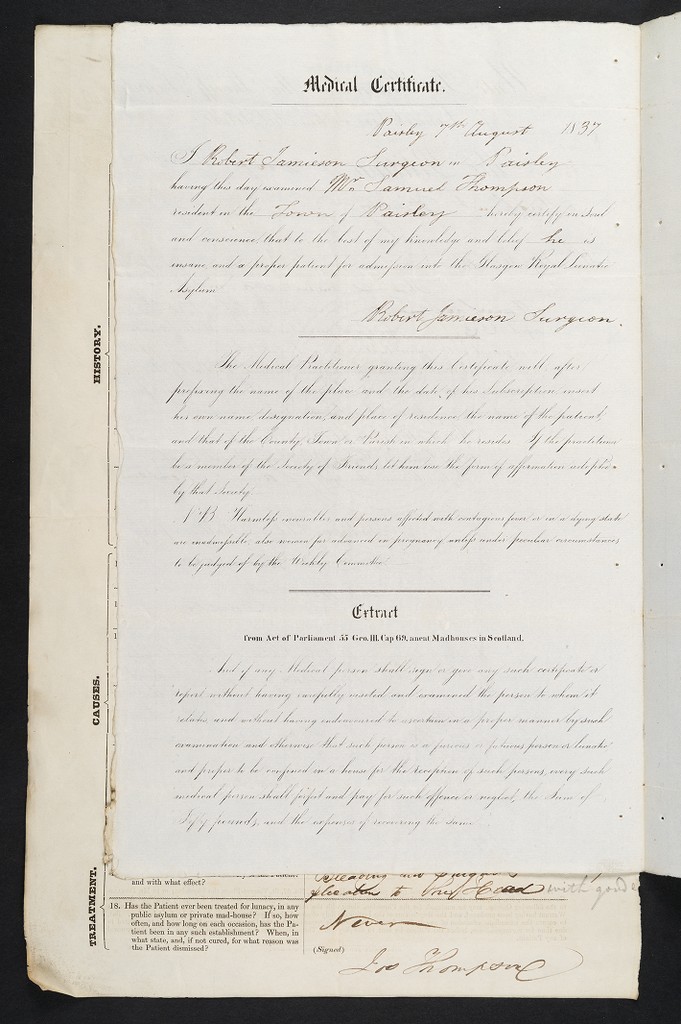 Medical Certificate.
Paisley 7th August 1837
I Robert Jamieson Surgeon in Paisley
having this day examined Mr. Samuel Thompson
resident in the Town of Paisley hereby certify on soul
and conscience that to the best of my knowledge and belief he is
insane, and a proper patient for admission into the Glasgow Royal Lunatic
Asylum
Robert Jamieson Surgeon.
The Medical Practitioner granting this Certificate will, after
prefixing the name of the place and the date of his Subscription, insert
his own name, designation, and place of residence, the name of the patient,
and that of the County, Town or Parish in which he resides. If the practitioner
be a member of the Society of Friends, let him use the form of affirmation adopted
by that Society.
N.B. Harmless incurables and persons affected with contagious fever or in a dying state
are inadmissible, also women far advanced in pregnancy unless under peculiar circumstances
to be judged of by the Weekly Committee.
Extract
from Act of Parliament 55 Geo. III. Cap 69, anent Madhouses in Scotland.
And if any Medical person shall sign or give any such certificate or
report without having carefully visited and examined the person to whom it
relates, and without having endeavoured to ascertain in a proper manner by such
examination and otherwise that such person is a furious or fatuous person or lunatic
and proper to be confined in a house for the reception of such persons, every such
medical person shall forfeit and pay for such offence or neglect, the Sum of
Fifty pounds, and the expenses of recovering the same.
HISTORY.
CAUSES.
TREATMENT.
and with what effect?
Bleeding and
to the Head with good
18. Has the Patient ever been treated for lunacy, in any
public asylum or private mad-house? If so, how
often, and how long on each occasion, has the Pa-
tient been in any such establishment? When, in
what state, and, if not cured, for what reason was
the Patient dismissed?
Never
(Signed)
Jos Thompson